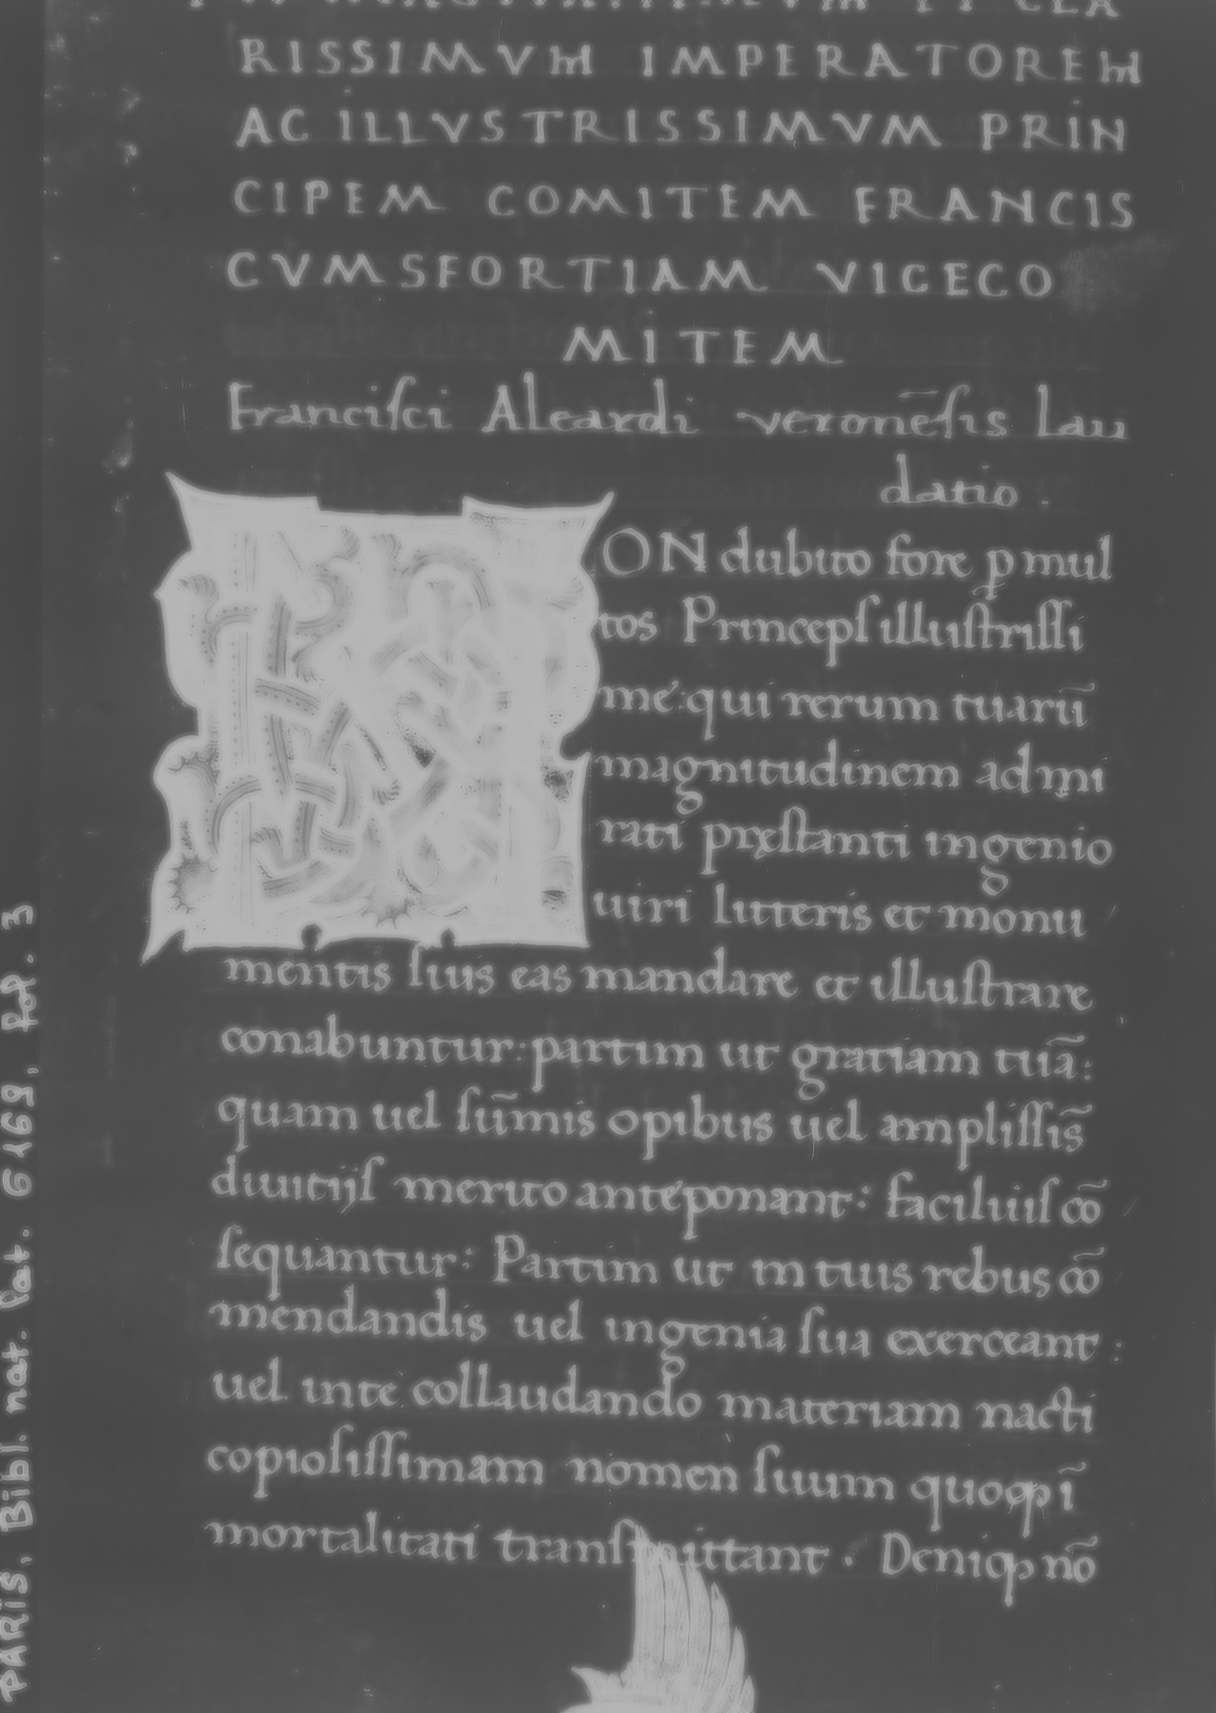 RISSIMVM IMPERATOREM
AC ILLVSTRISSIMVM PRIN
CIPEM COMITEM FRANCIS
CVM SFORTIAM VICECO
MITEM
Franciſci Aleardi veronēſis lau
datio .
NON dubito fore ꝑmul
tos Princepſ illuſtriſſi
me: qui rerum tuarū
magnitudinem admi
rati pręſtanti ingenio
uiri litteris et monu
mentis ſuis eas mandare et illuſtrare
conabuntur: partim ut gratiam tuā:
quam uel ſūmis opibus uel ampliſſis̄
diuitijſ merito anteponant: faciliuſ cō
ſequantur: Partim ut in tuis rebus cō
mendandis uel ingenia ſua exerceant:
uel inte collaudando materiam nacti
copioſiſſimam nomen ſuum quoqꝫ ī
mortalitati tranſmittant . Deniqꝫ nō
PARIS, Bibl. nat. lat. 6168, fol. 3